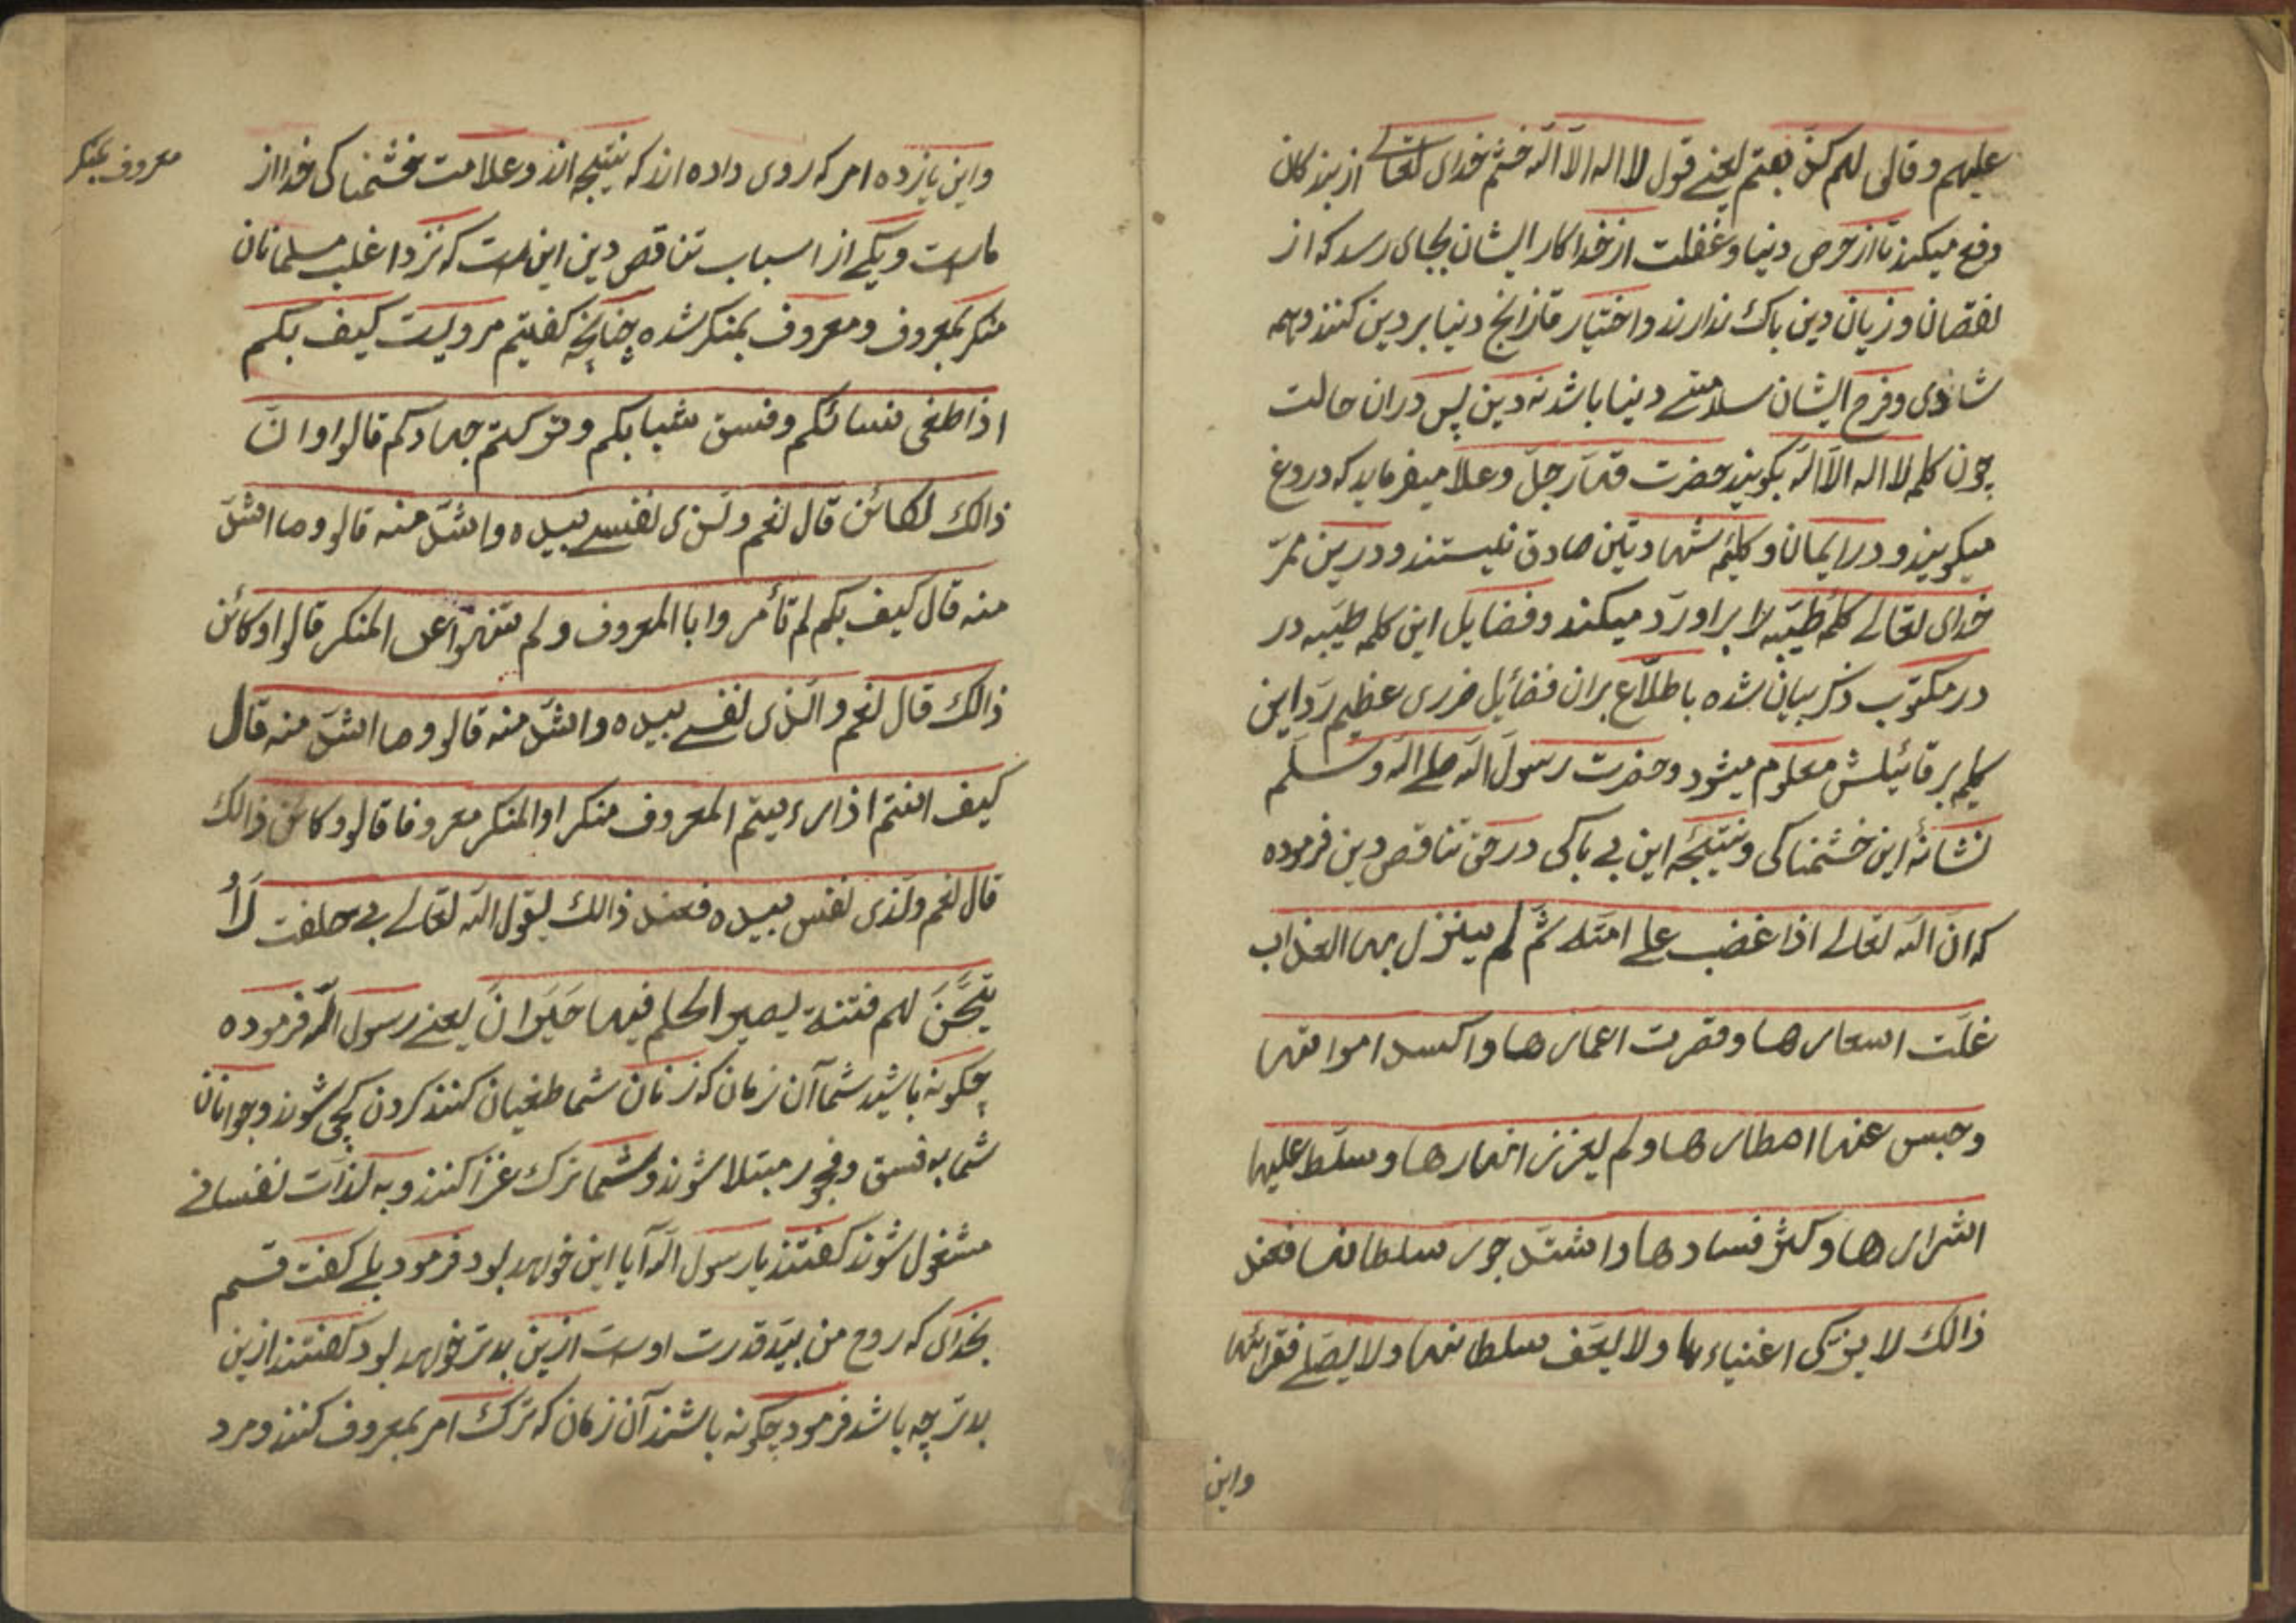 علیهم و قالی لهم کذبتم یعنے قول لا اله الا الله خشم خدای تعالے از بندکان
دفع میکند تا از حرص دنیا و غفلت از خدا کار ایشان بجای رسد که از
نقصان و زیان دین باک ندارند و اختیار دنیا بر دین کنند و همه
شادی و فرح ایشان سلامتے دنیا باشد نه دین پس دران حالت
چون کلمه لا اله الا الله بکویند حضرت قهار جل و علا میفرماید که دروغ
میکویند و در ایمان و کلیمه شهادتین صادق نیستند و درین ممر
خدای تعالے کلمه طیبه را براو رد میکند و فضایل این کلمه طیبه در
در مکتوب ذکر بیان شده باطلاع بران فضائیل ضرری عظیم رد این
کلیمه بر قائیلش معلوم میشود و حضرت رسول الله صلے الله و سلم
نشانهٔ این خشمناکی و نتیجهٔ این بے باکی در حق تناقص دین فرموده
که ان الله تعالے اذا غضب علے امته ثم لم ینزل بها العذاب
غلت اسعارها و قصرت اعمارها و اکسد اموالها
و حبس عنها امطارها و لم یغزز انهارها و سلط علیها
اشرارها و کثر فسادها و اشتد جور سلطانها فعند
ذالک لا یزکی اغنیاءها و لا یعف سلطانها و لا یصلے فقرائها
واین
واین یازده امر که روی داده اند که نتیجه اند و علامت خشمناکی خدا از
ماست و یکے از اسباب تناقص دین این است که نزد اغلب مسلمانان
منکر بمعروف و معروف بمنکر شده چنانچه کفتیم مرویست کیف بکم
اذا طغی نسائکم و فسق شبابکم و ترکتم جهادکم قالوا و ان
ذالک لکائن قال نعم ولذی نفسے بیده و اشد منه قالو و ما اشد
منه قال کیف بکم لم تأمروا باالمعروف و لم تنهوا عن المنکر قالوا و کائن
ذالک قال نعم والذی نفسے بیده و اشد منه قالو و ما اشد منه قال
کیف انتم اذا رءیتم المعروف منکرا والمنکر معروفا قالو و کائن ذالک
قال نعم ولذی نفس بیده فعند ذالک یقول الله تعالے بے حلفت لاُ
تیحن لهم فتنة یصیر الحلیم فیها حیران یعنے رسول الله فرموده
چکونه باشید شما آن زمان که زنان شما طغیان کنند کردن کچی شوند و جوانان
شما به فسق و فجور مبتلا شوند و شما ترک غزا کنند و به لذات نفسانے
مشغول شوند کفتند یا رسول الله آیا این خواهد بود فرمود بلے کفت قسم
بخدای که روح من بید قدرت اوست ازین بدتر خواهد بود کفتند ازین
بدتر چه باشد فرمود چکونه باشند آن زمان که ترک امر بمعروف کنند و مرد
معروف بمنکر